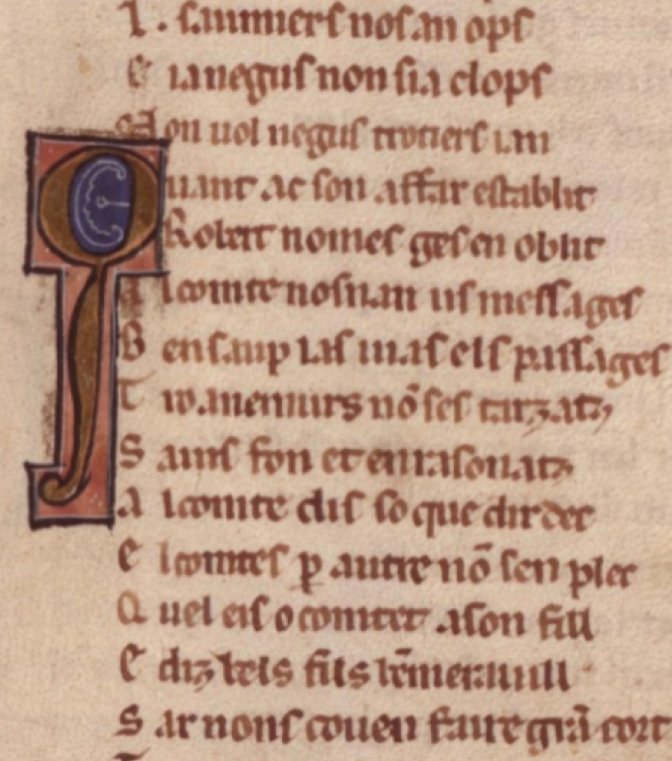 I. saumiers nos an ops
E ia negus non sia clops
Non uol negus trotiers i an
Quant ac son affar establit
Robert nomes ges en oblit
Al comte nosn an us messages
B en saup las uias els passages
T ro a nemurs nō ses tarzatz
S auis fon et enrasonatz
A l comte dis so que dir dec
E l comtes ꝑ autre nō sen plec
Q uel eis o comtet a son fill
E diz bels fils bēmerauill
S ar nons couen faire grā cort